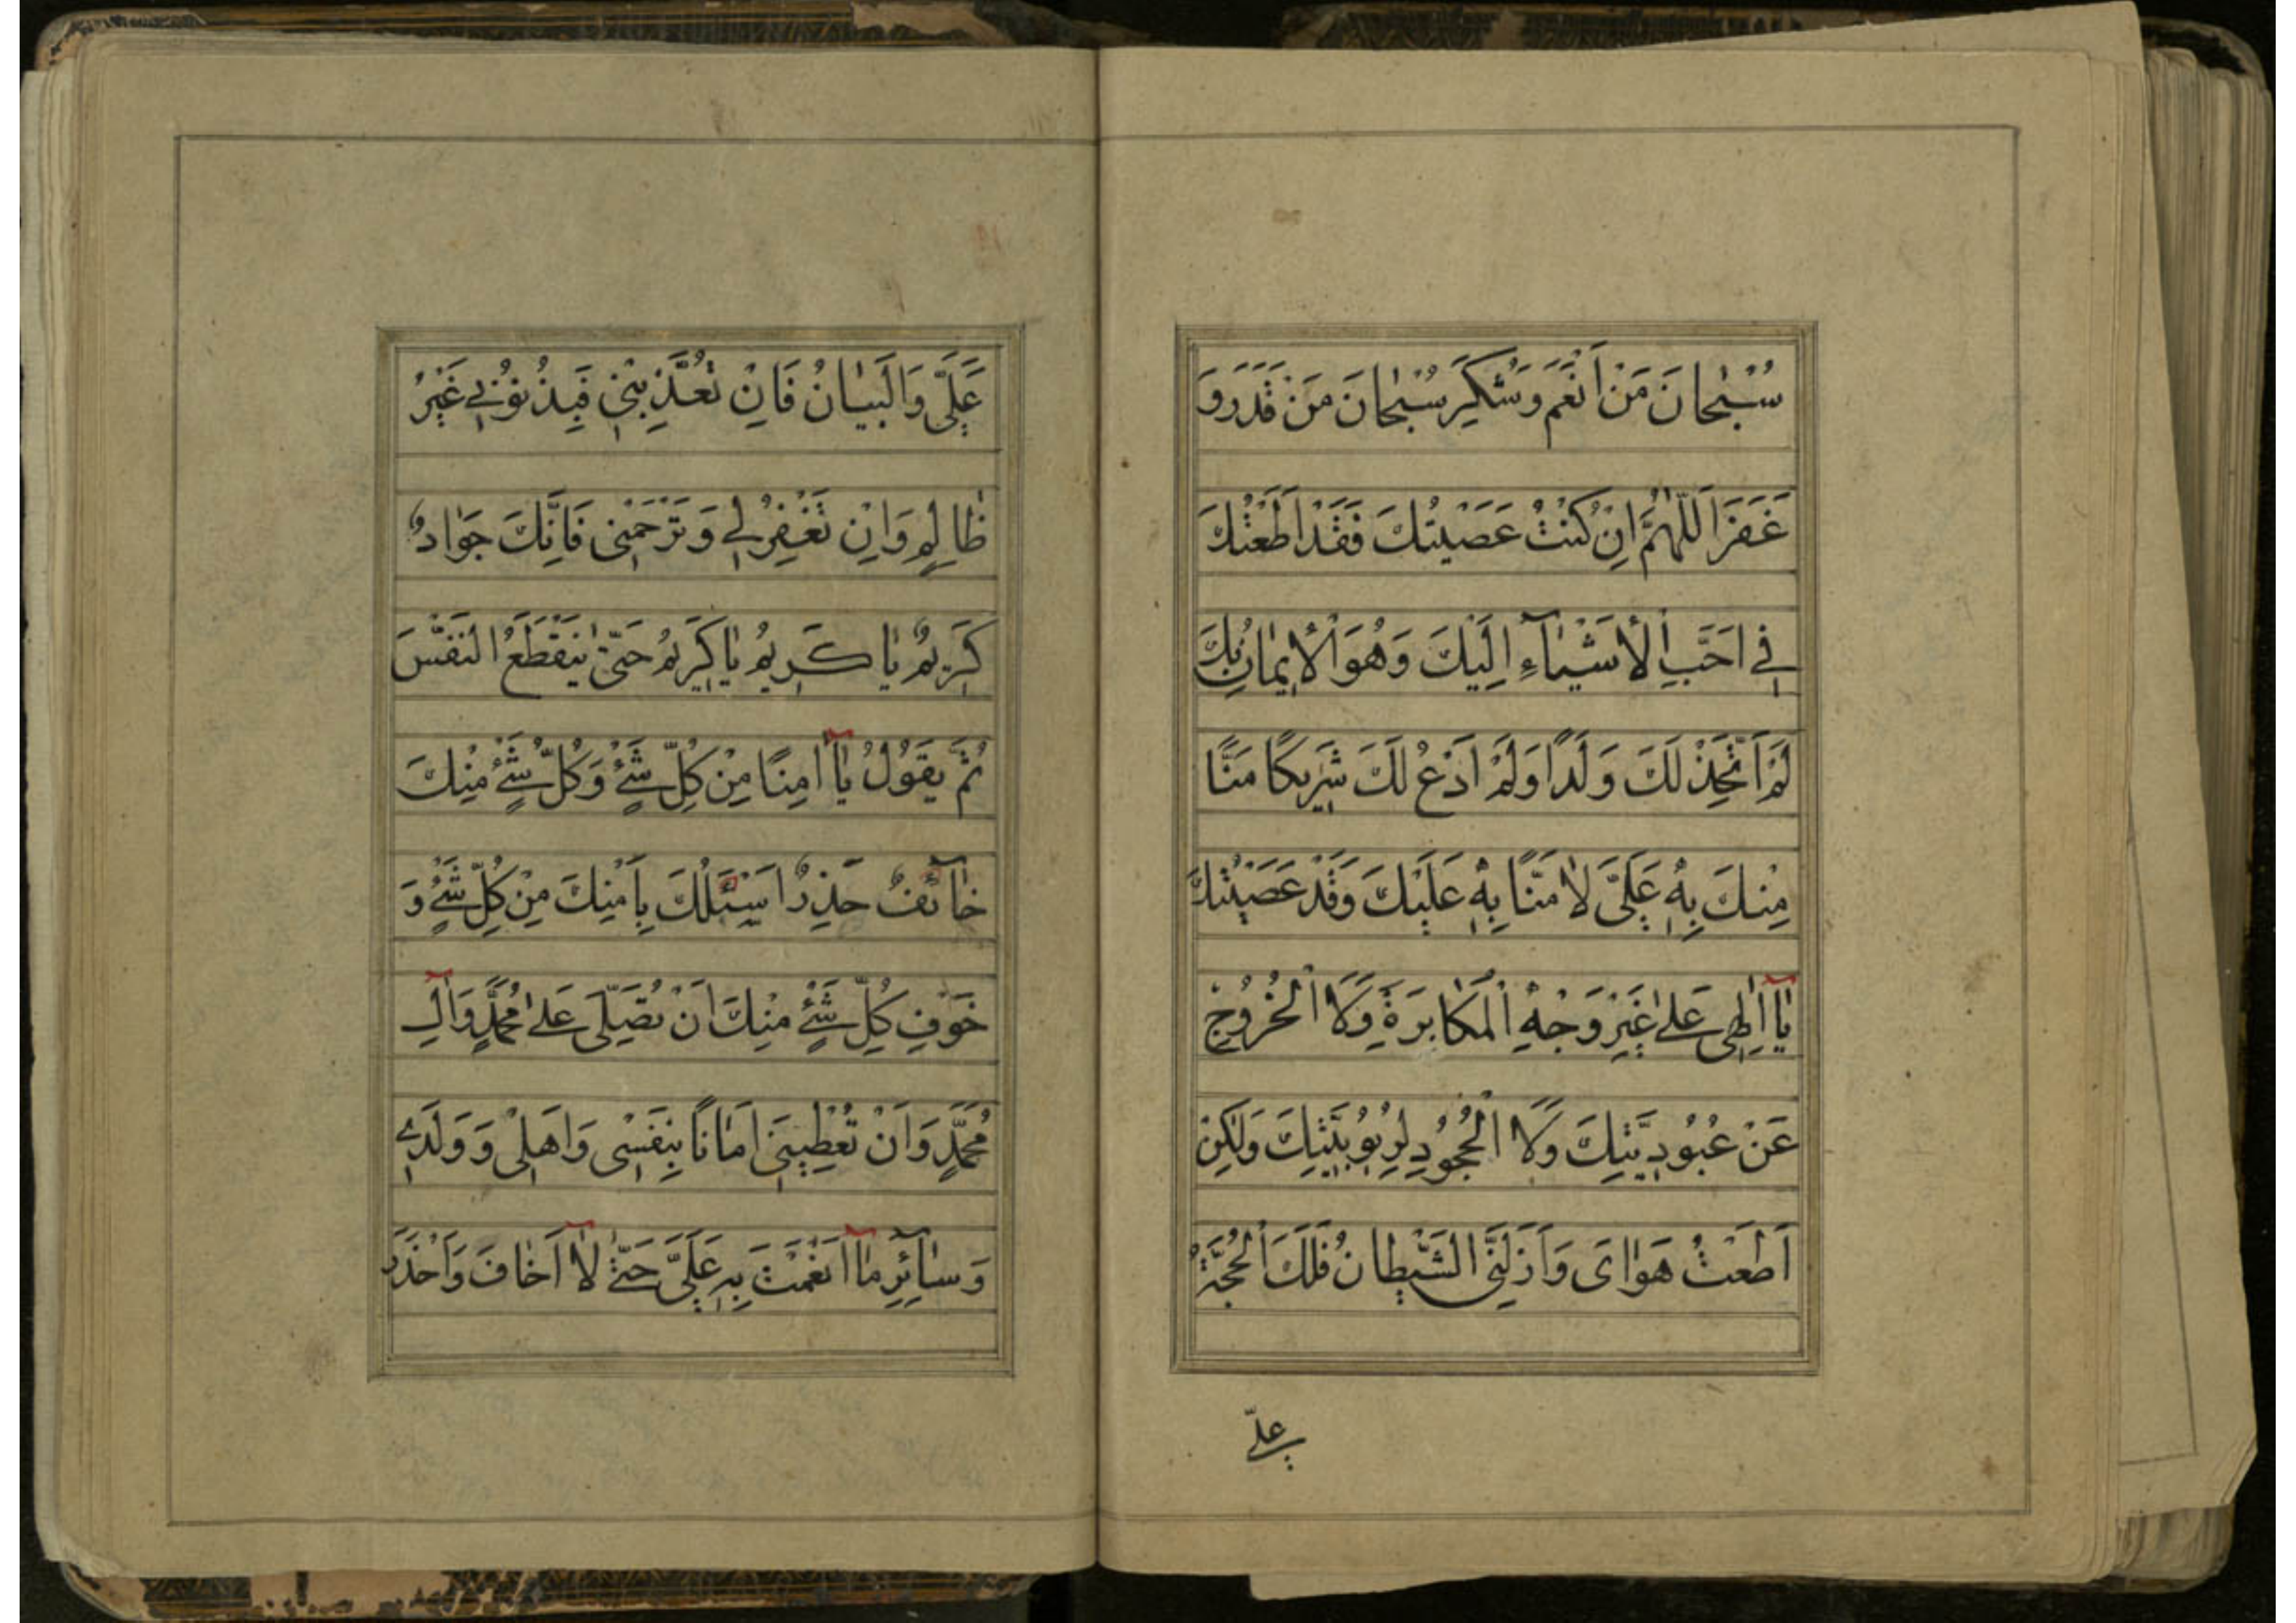 سُبْحانَ مَنْ اَنْعَمَ وَشَكَرَ سُبْحانَ مَنْ قَدَرَ وَ
غَفَرَ اَللّٰهُمَّ اِنْ كُنْتُ عَصَيْتُكَ فَقَدْ اَطَعْتُكَ
فِي اَحَبِّ الْأَشْيٰآءِ اِلَيْكَ وَهُوَ الْإيمانُ بِكَ
لَمْ اَتَّخِذْ لَكَ وَلَدًا وَلَمْ اَدْعُ لَكَ شَرِيكًا مَنًّا
مِنْكَ بِهِ عَلَيَّ لا مَنًّا بِهِ عَلَيْكَ وَقَدْ عَصَيْتُكَ
يٰآ اِلٰهِي عَلىٰ غَيْرِ وَجْهِ الْمُكابَرَةِ وَلَا الْخُرُوجِ
عَنْ عُبُودِيَّتِكَ وَلَا الْجُحُودِ لِرُبُوبِيَّتِكَ وَلٰكِنْ
اَطَعْتُ هَوٰاىَ وَاَزَلَّنِي الشَّيْطانُ فَلَكَ الْحُجَّةُ
عليّ
عَلَيَّ وَالْبَيٰانُ فَاِنْ تُعَذِّبْنِي فَبِذُنُوْبِي غَيْرُ
ظٰالِمٍ وَاِنْ تَغْفِرْ لِي وَتَرْحَمْنِي فَاِنَّكَ جَوٰادٌ
كَرِيْمٌ يٰا كَرِيْمُ يٰا كَرِيْمُ حَتّىٰ يَنْقَطَعَ النَّفَسَ
ثُمَّ يَقُوْلُ يٰآ اٰمِنًا مِنْ كُلِّ شَيْءٍ وَكُلُّ شَيْءٍ مِنْكَ
خٰآئِفٌ حَذِرٌ اَسْئَلُكَ بِاَمْنِكَ مِنْ كُلِّ شَيْءٍ وَ
خَوْفِ كُلِّ شَيْءٍ مِنْكَ اَنْ تُصَلِّيَ عَلىٰ مُحَمَّدٍ وَآلِ
مُحَمَّدٍ وَاَنْ تُعْطِيَنِي اَمٰانًا لِنَفْسِي وَاَهْلِي وَوَلَدِي
وَسٰآئِرِ مٰآ اَنْعَمْتَ بِهِ عَلَيَّ حَتّىٰ لٰآ اَخٰافَ وَاَحْذَرَ